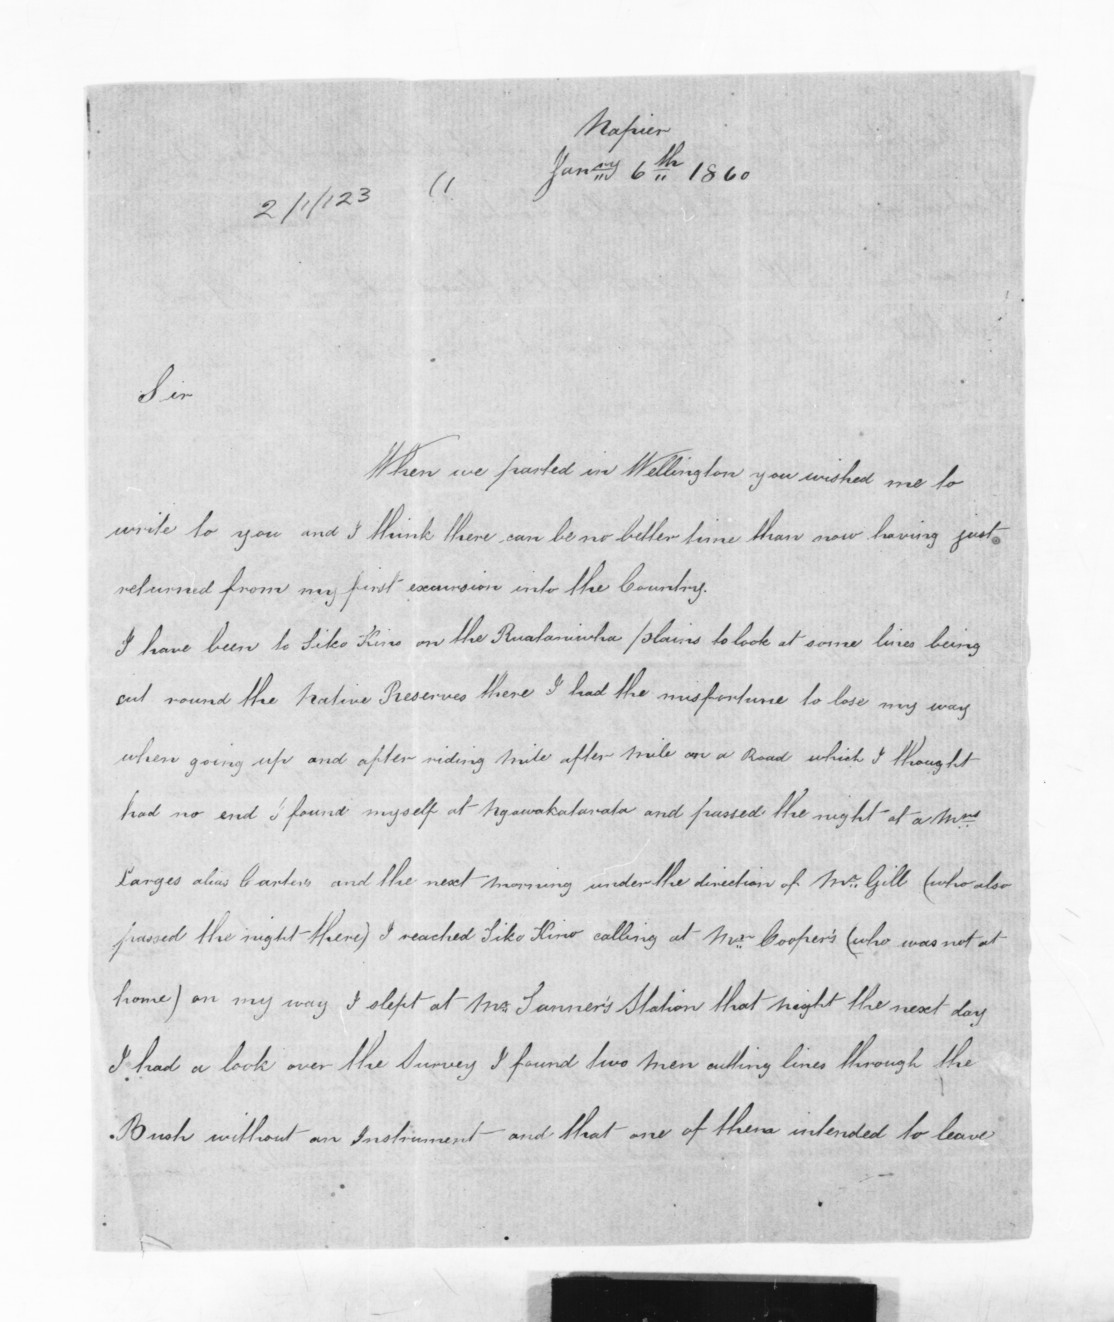 Napier
Janry 6th 1860
2/1/123 (1
Sir
When we parted in Wellington you wished me to
write to you and I think there can be no better time than now having just
returned from my first excursion into the Country.
I have been to Tiko Kino on the Ruataniwha plains to look at some lines being
cut round the Native Reserves there I had the misfortune to lose my way
when going up and after riding mile after mile on a Road which I thought
had no end I found myself at Ngawakatarata and passed the night at a Mrs
Larges alias Carters and the next morning under the direction of Mr Gill (who also
passed the night there) I reached Tiko Kino calling at Mr Cooper's (who was not at
home) on my way I slept at Mr Tanner's Station that night the next day
I had a look over the Survey I found two men cutting lines through the
Bush without an Instrument and that one of them intended to leave